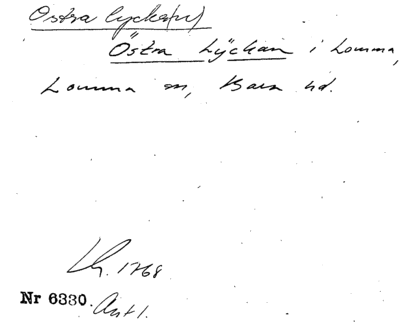 Östra lycka(n)
Östra Lyckan i Lomma,
Lomma sn, Bara hd.
Lh. 1768
Nr 6330. Ant 1.